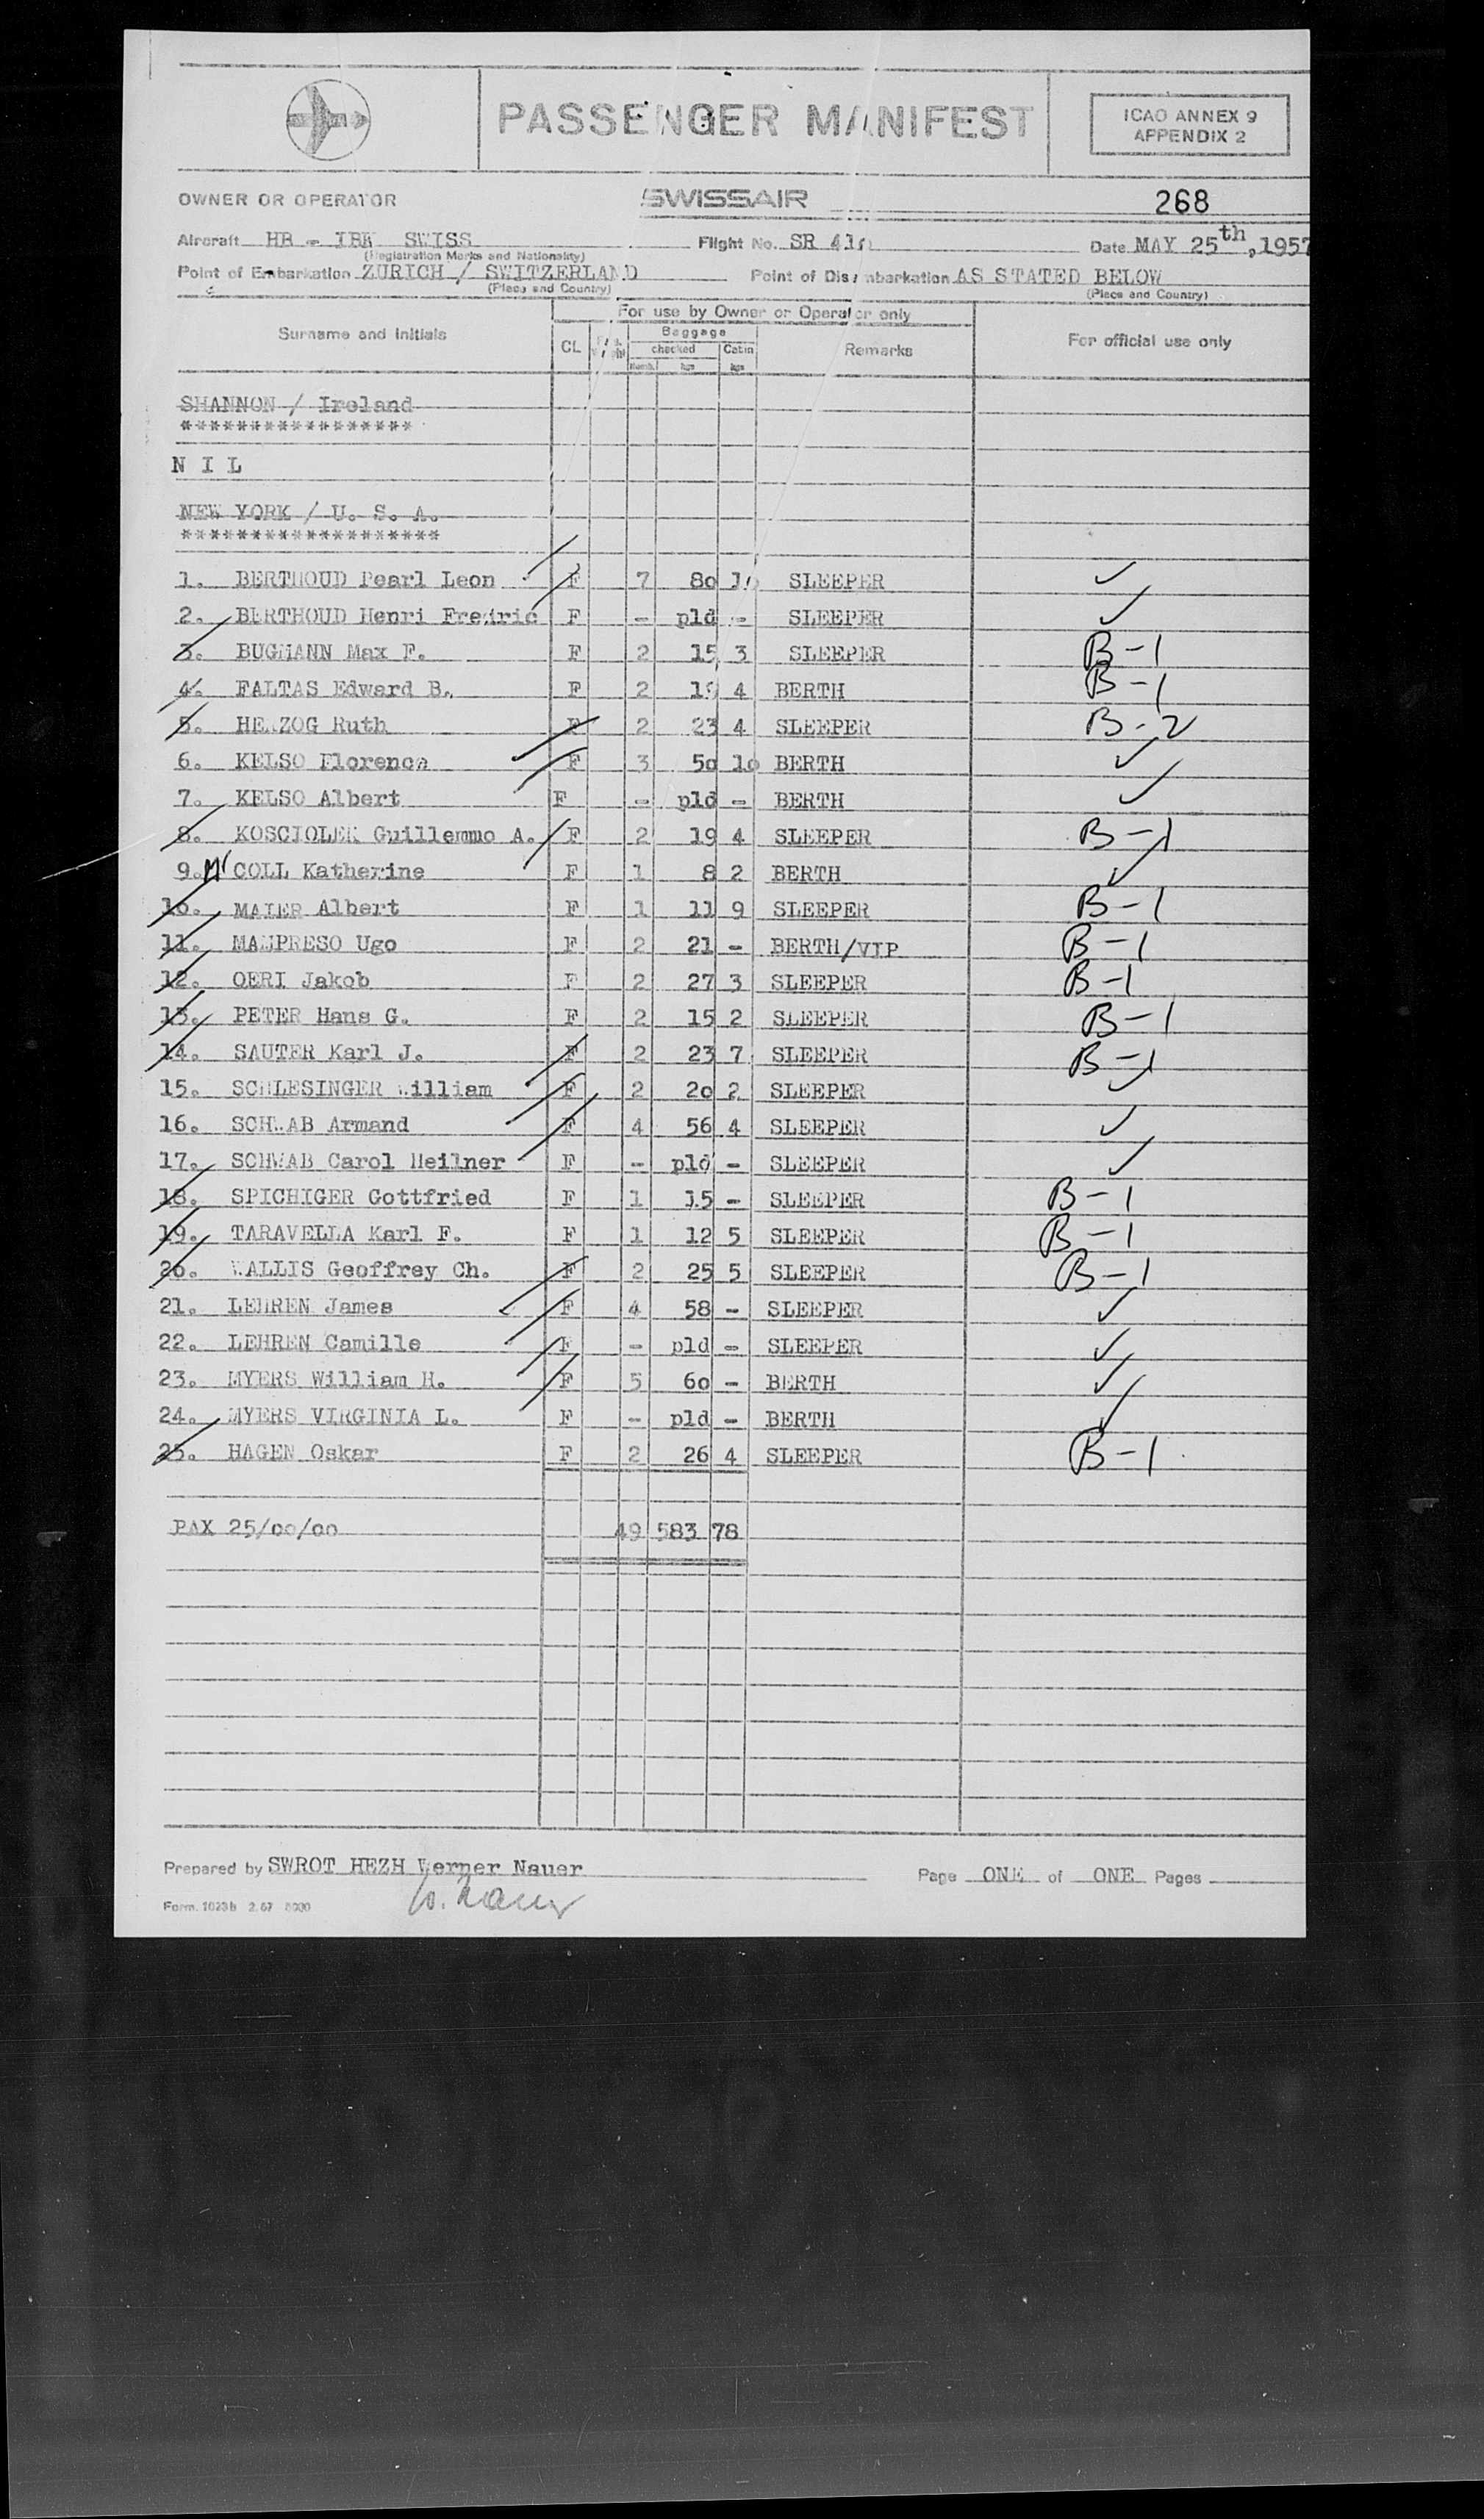 PASSENGER MANIFEST
ICAO ANNEX 9
APPENDIX 2
OWNER OR OPERATOR SWISSAIR 268
Aircraft HB - IBK SWISS Flight No. SR Date MAY 25th, 1957
(Registration Marks and Nationality)
Point of Embarkation ZURICH / SWITZERLAND Point of Disembarkation AS STATED BELOW
(Place and Country) (Place and Country)
For use by Owner or Operator only
Surname and Initials CL Baggage Remarks For official use only
checked Cabin
kgs kgs
SHANNON / Ireland
*****************
N I L
NEW YORK / U. S. A.
*******************
1. BERTHOUD Pearl Leon F 7 80 10 SLEEPER ✓
2. BERTHOUD Henri Fredric F - pld - SLEEPER ✓
3. BUGMANN Max F. F 2 15 3 SLEEPER B-1
4. FALTAS Edward B. F 2 19 4 BERTH B-1
5. HERZOG Ruth F 2 23 4 SLEEPER B-2
6. KELSO Florence F 3 50 10 BERTH ✓
7. KELSO Albert F - pld - BERTH ✓
8. KOSCIOLEK Guillemmo A. F 2 19 4 SLEEPER B-1
9. Mc COLL Katherine F 1 8 2 BERTH ✓
10. MAIER Albert F 1 11 9 SLEEPER B-1
11. MAMPRESO Ugo F 2 21 - BERTH/VIP B-1
12. OERI Jakob F 2 27 3 SLEEPER B-1
13. PETER Hans G. F 2 15 2 SLEEPER B-1
14. SAUTER Karl J. F 2 23 7 SLEEPER B-1
15. SCHLESINGER William F 2 20 2 SLEEPER ✓
16. SCHWAB Armand F 4 56 4 SLEEPER ✓
17. SCHWAB Carol Heilner F - pld - SLEEPER ✓
18. SPICHIGER Gottfried F 1 15 - SLEEPER B-1
19. TARAVELLA Karl F. F 1 12 5 SLEEPER B-1
20. WALLIS Geoffrey Ch. F 2 25 5 SLEEPER B-1
21. LEHREN James F 4 58 - SLEEPER ✓
22. LEHREN Camille F - pld - SLEEPER ✓
23. MYERS William H. F 5 60 - BERTH ✓
24. MYERS VIRGINIA L. F - pld - BERTH ✓
25. HAGEN Oskar F 2 26 4 SLEEPER B-1
PAX 25/00/00 49 583 78
Prepared by SWROT HEZH Werner Nauer Page ONE of ONE Pages
W. Nauer
Form. 1023b 2.57